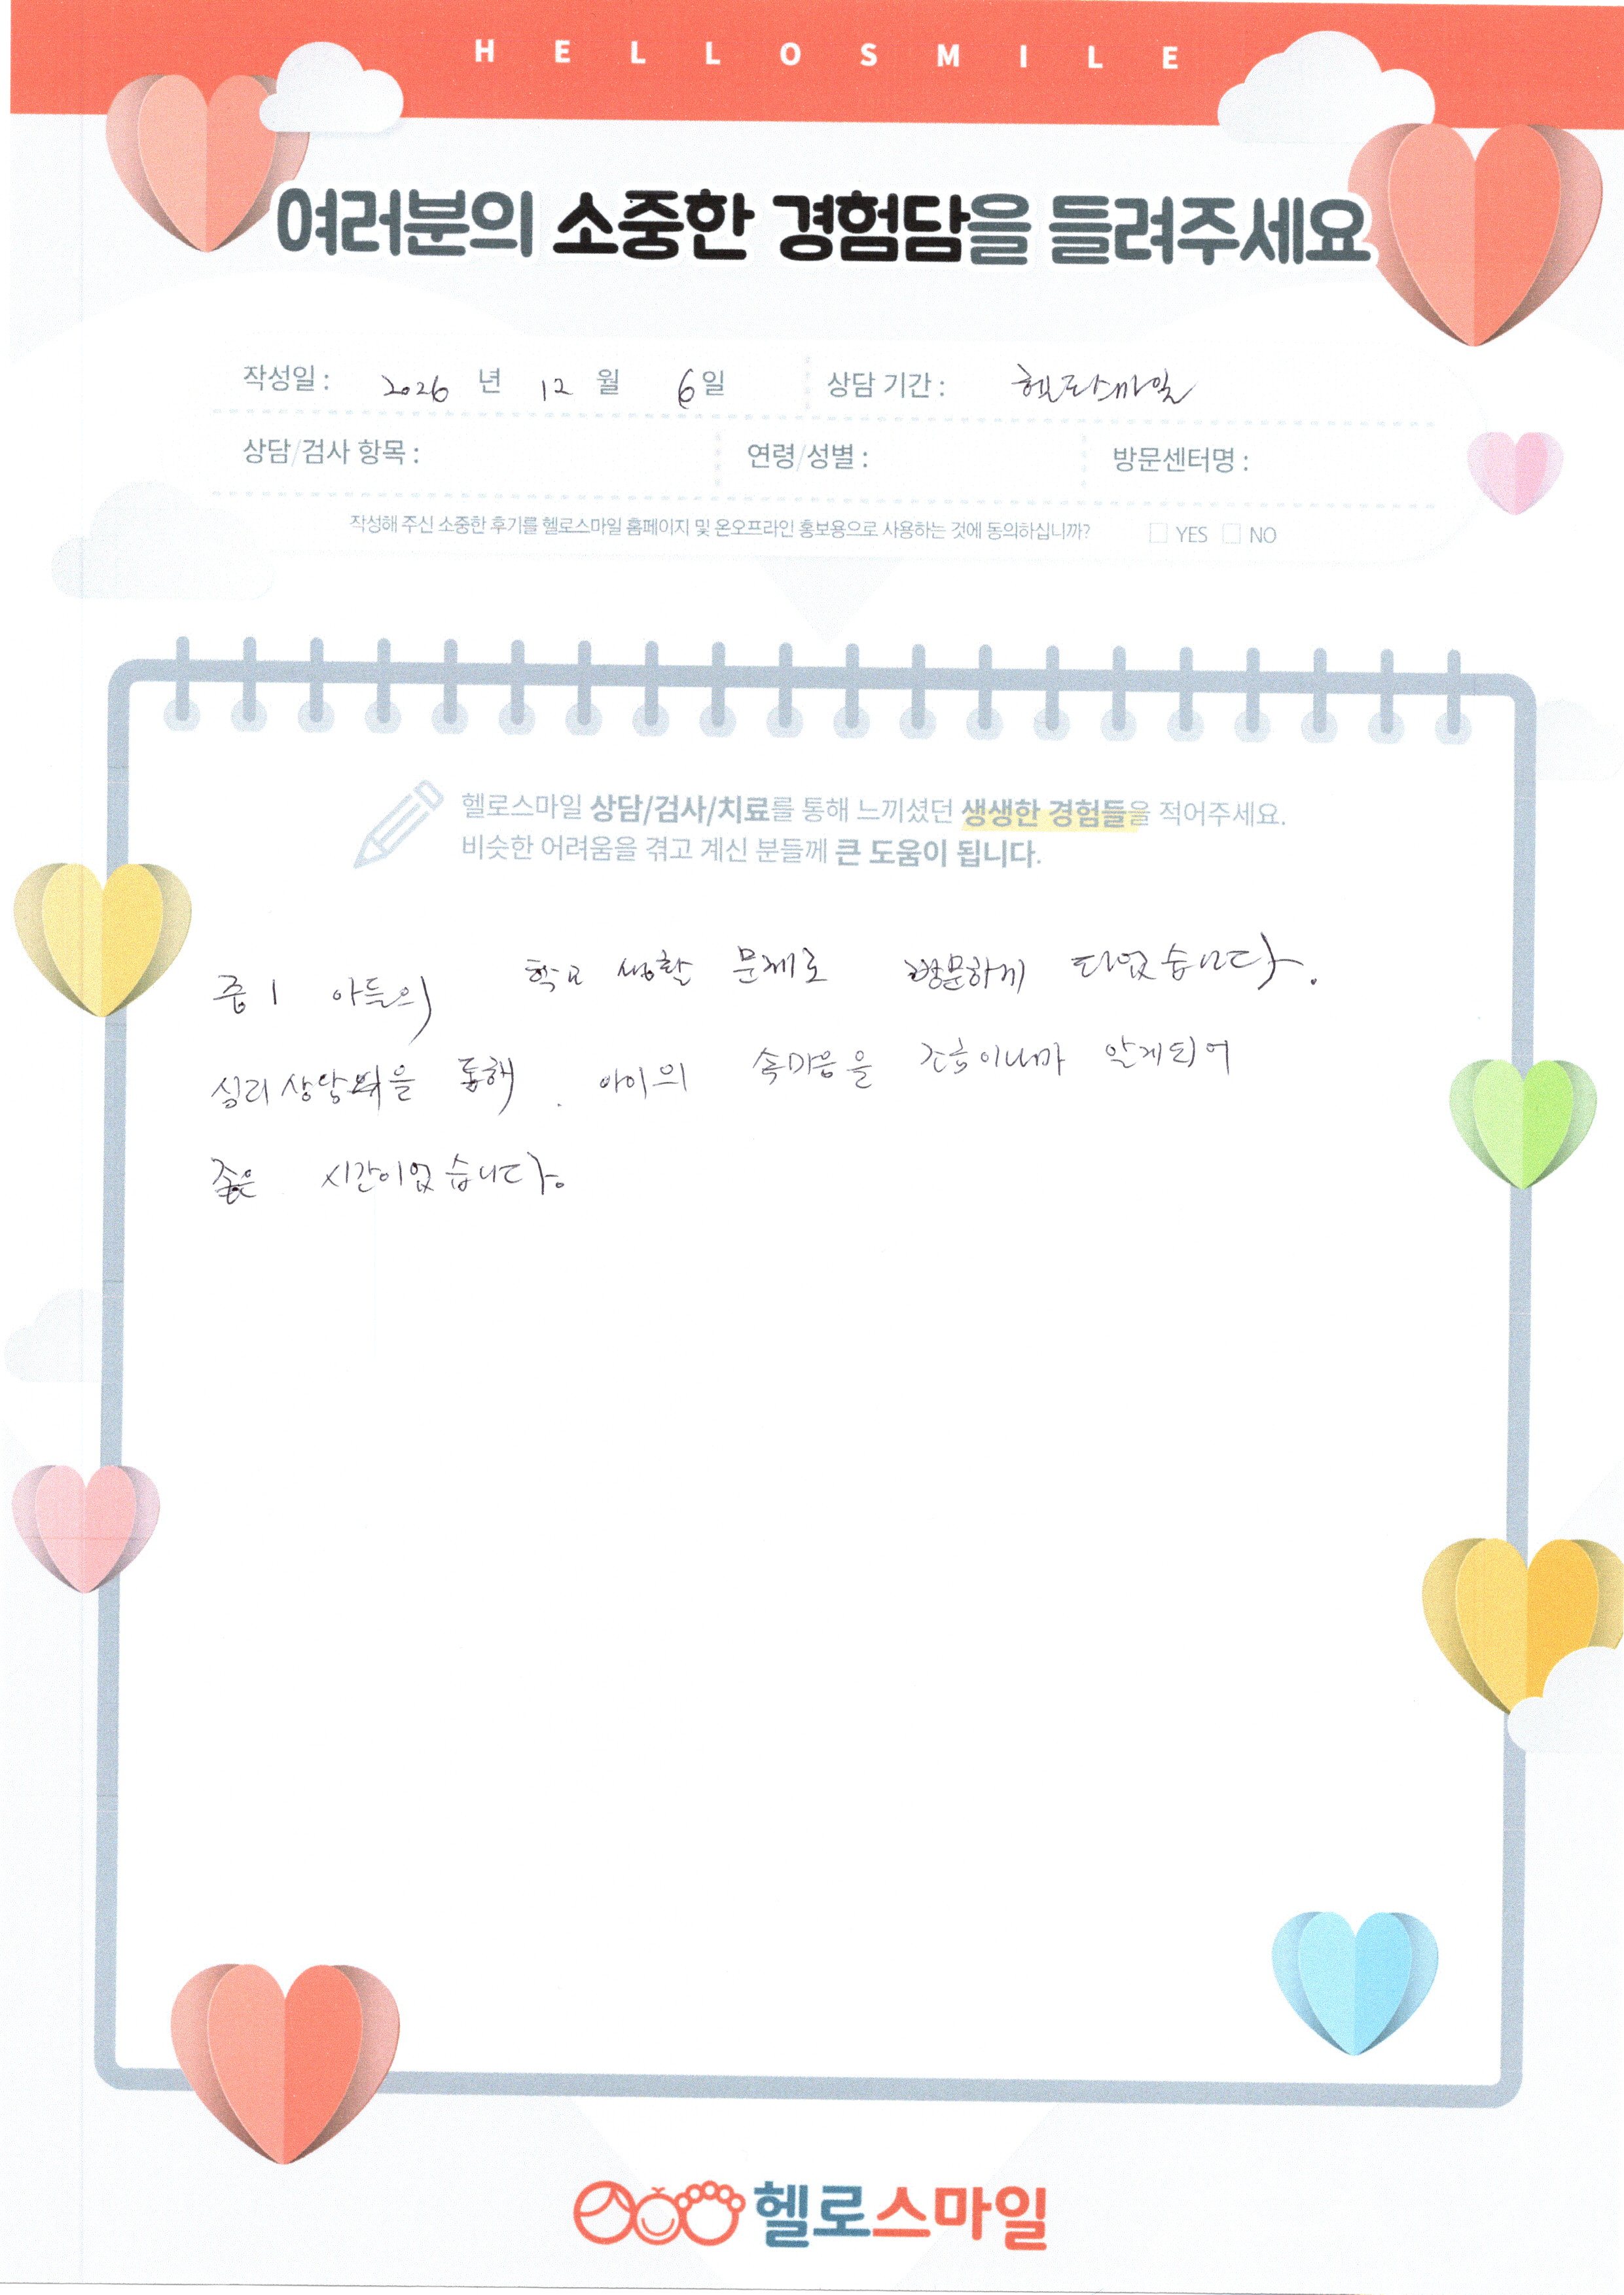 HELLOSMILE
여러분의 소중한 경험담을 들려주세요
작성일 : 2026 년 12 월 6일 상담 기간 : 헬로스마일
상담/검사 항목 : 연령/성별 : 방문센터명 :
작성해 주신 소중한 후기를 헬로스마일 홈페이지 및 온오프라인 홍보용으로 사용하는 것에 동의하십니까? YES NO
헬로스마일 상담/검사/치료를 통해 느끼셨던 생생한 경험들을 적어주세요.
비슷한 어려움을 겪고 계신 분들께 큰 도움이 됩니다.
중1 아들의 학교 생활 문제로 방문하게 되었습니다.
심리상담을 통해. 아이의 속마음을 조금이나마 알게되어
좋은 시간이었습니다.
헬로스마일